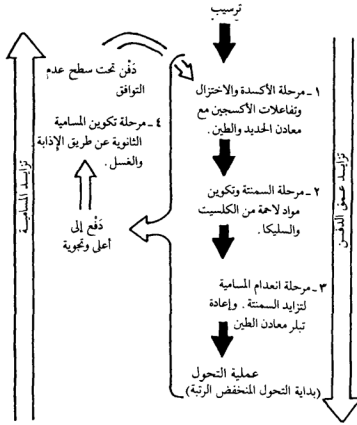 ترسيب
١ - مرحلة الأكسدة والاختزال
وتفاعلات الأكسجين مع
معادن الحديد والطين.
٢ - مرحلة السمنتة وتكوين
مواد لاحمة من الكلسيت
والسليكا.
٣ - مرحلة انعدام المسامية
لتزايد السمنتة. وإعادة
تبلر معادن الطين
عملية التحول
(بداية التحول المنخفض الرتبة)
تزايد عمق الدفن
دَفْن تحت سطح عدم
التوافق
٤ - مرحلة تكوين المسامية
الثانوية عن طريق الإذابة
والغسل.
دَفْع إلى
أعلى وتجوية
تزايد المسامية